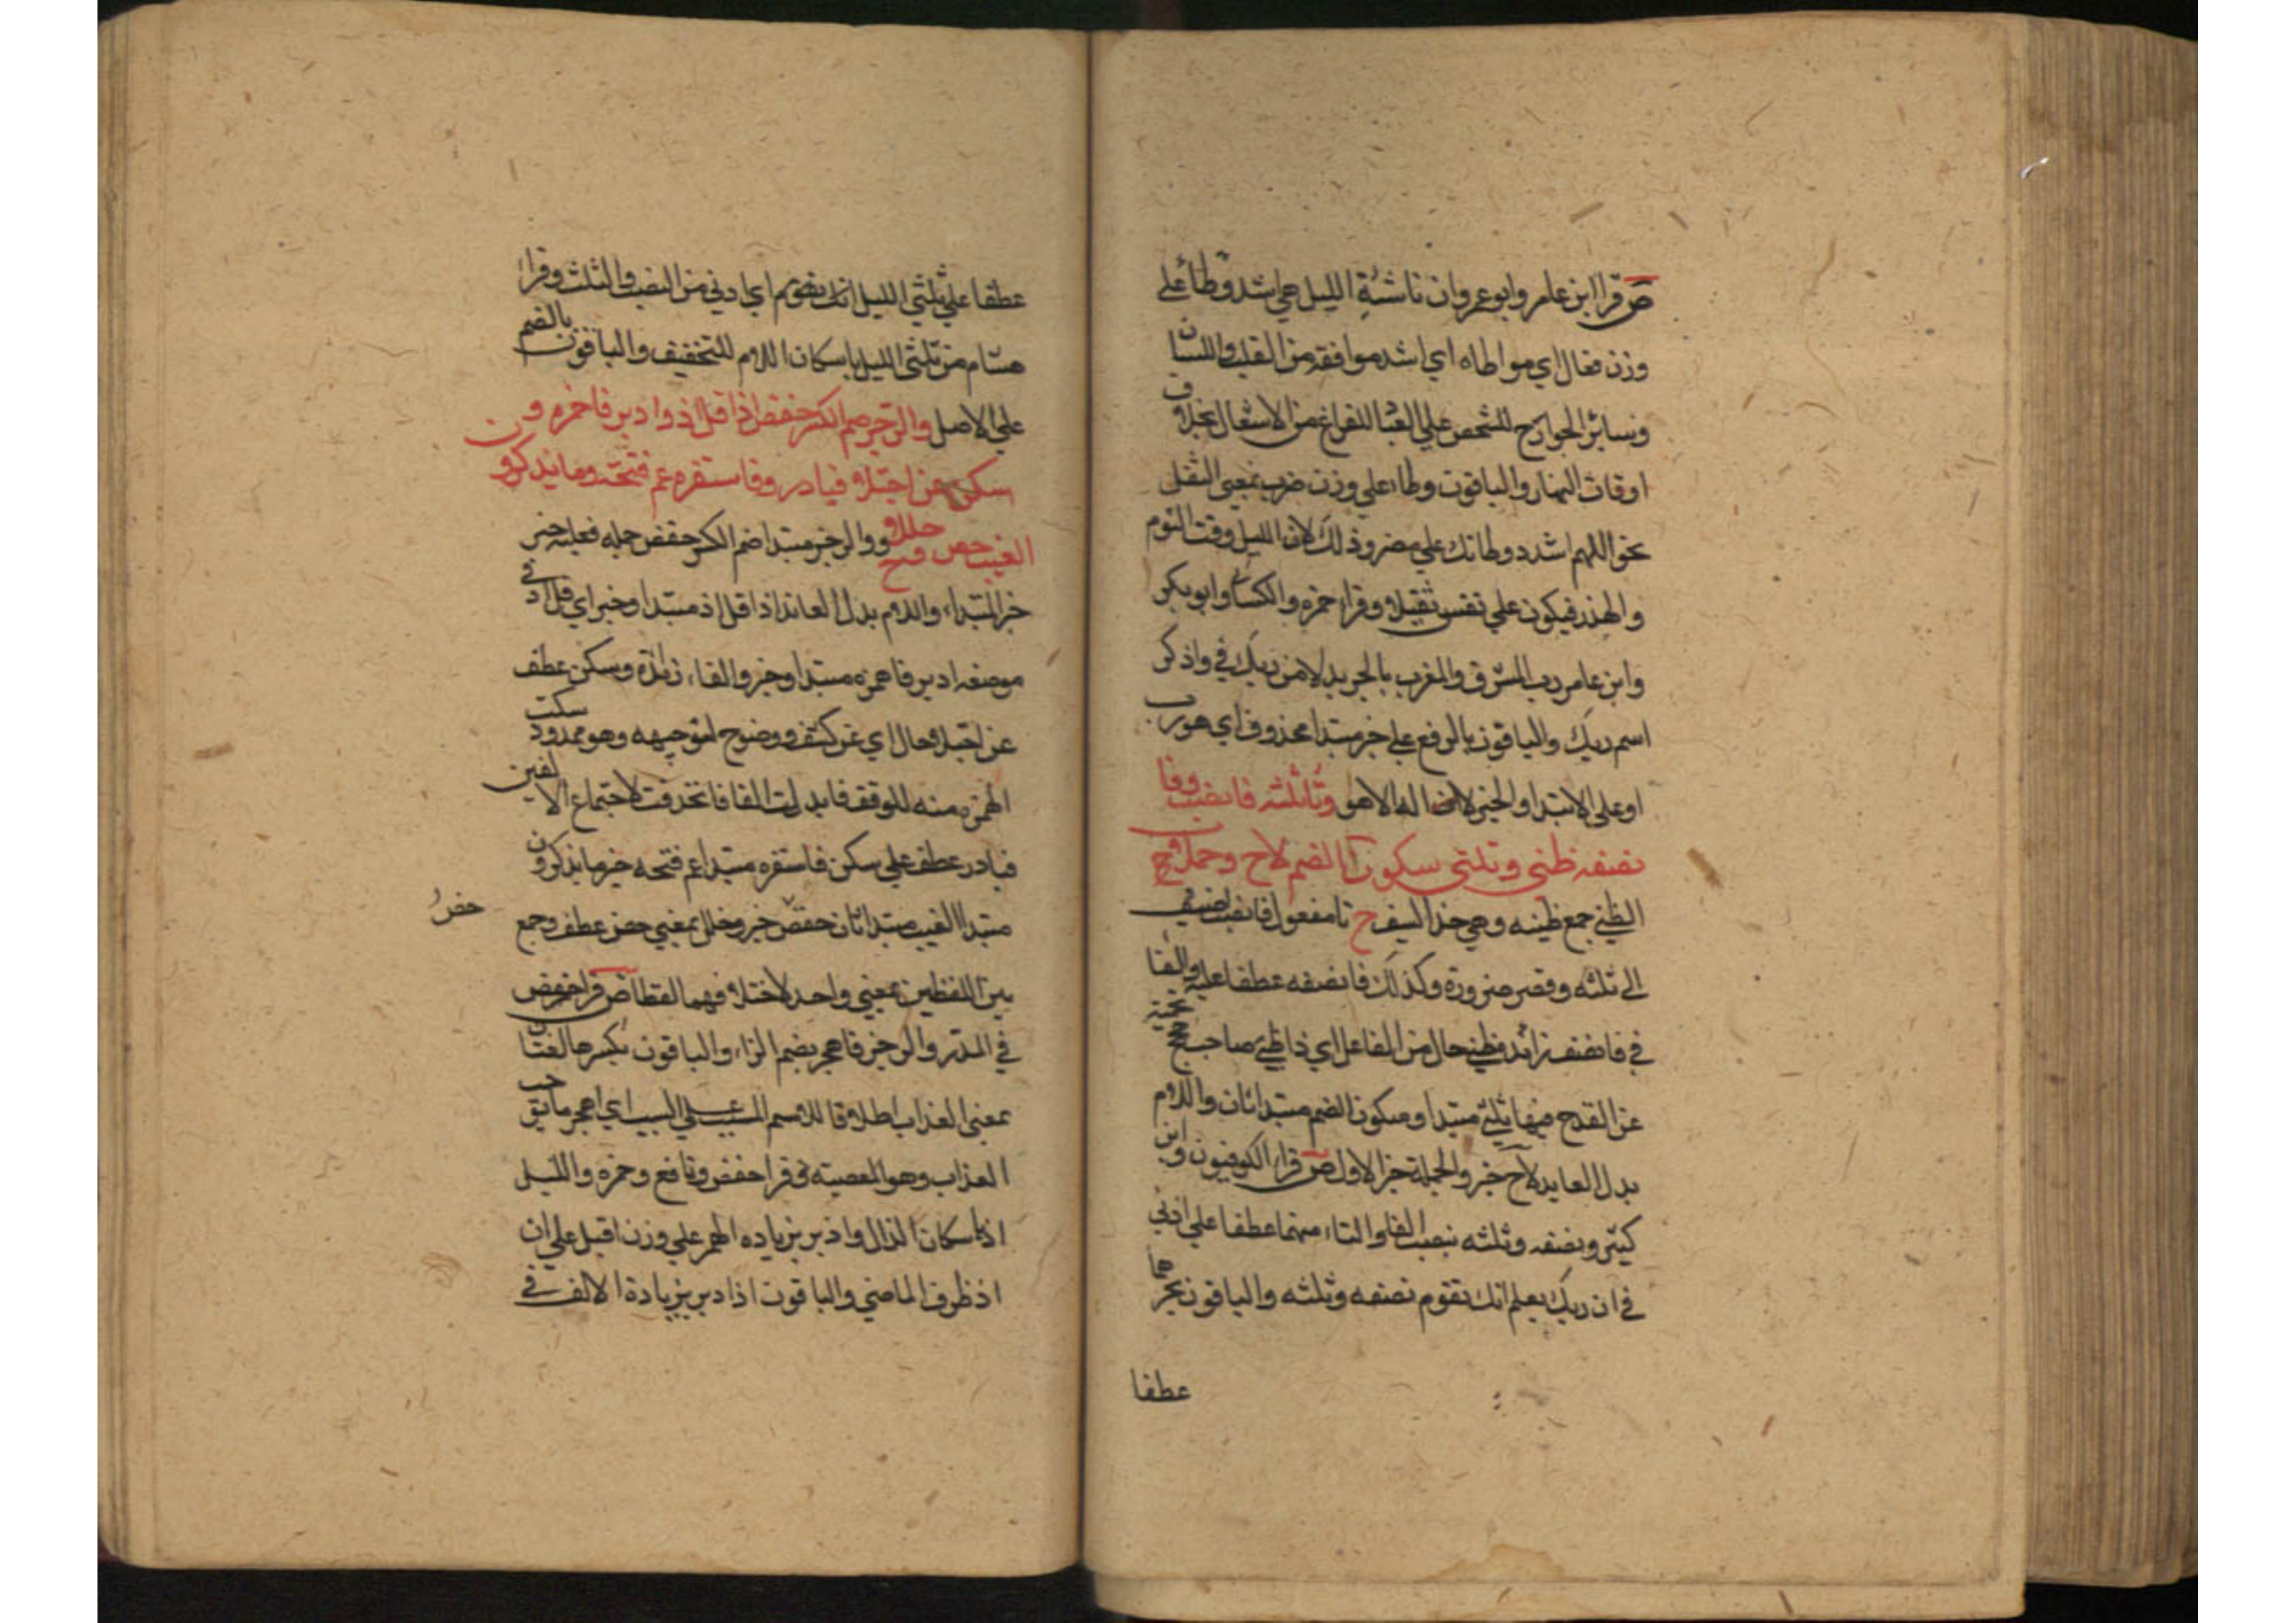 ص قرا ابن عامر وابو عمرو ان ناشئة الليل هي اشد وطاءً علي
وزن فعال اي مواطاه اي اشد موافقه من القلب واللسان
وسائر الجوارح للشخص علي العبا للفراغ من الاشغال بخلاف
اوقات النهار والباقون وطا علي وزن ضرب بمعني الثقل
نحو اللهم اشدد وطاتك علي مضر وذلك لان الليل وقت النوم
والهذر فيكون علي نفس ثقيلا وقرا حمزه والكسا وابو بكر
وابن عامر رب المشرق والمغرب بالجر بدلا من ربك في واذكر
اسم ربك والباقون بالرفع علي خبر مبتدا محذوف اي هو رب
او علي الابتدا والخبر لا اله الا هو وثا ثلثه فانصب وفا
نصفه ظبي وثلثي سكون الضم لاح وجملا ح
الظبي جمع ظبيه وهي حد السيف ح ثا مفعول فانصب اضيف
الي ثلثه وقصر ضرورة وكذلك فا نصفه عطفا عليه والفا
في فانصب زائد ظبي حال من الفاعل اي ذا ظبي صاحب حجج
عن القدح فيها ثلثي مبتدا وسكون الضم مبتدا ثان واللام
بدل العايد لاح خبر والجملة خبر الاول ص قرا الكوفيون وابن
كثير ونصفه وثلثه بنصب الفا والثاء منهما عطفا علي ادني
في ان ربك يعلم انك تقوم نصفه وثلثه والباقون بجرهما
عطفا
عطفا علي ثلثي الليل انك تقوم اي ادني من النصف والثلث وقرا
هشام من ثلثي الليل باسكان اللام للتخفيف والباقون بالضم
علي الاصل والرجز ضم الكسر حفص اذا قل اذ وادبر فاهمزه و
سكن عن اجتلا فبادر وفا مستنفره عم فتحه وما يذكرون
الغيب خص وخللا ح والرجز مبتدا ضم الكسر حفص جمله فعليه خبر
خبر المبتداء واللام بدل العائد اذا قل اذ مبتدا وخبر اي قل اذ في
موضعه ادبر فاهمزه مبتدا وخبر والفاء زائدة وسكن عطف
عن اجتلا حال اي عن كشف ووضوح لتوجيهه وهو ممدود سكت
الهمزه منه للوقف فابدلت الفا فانحذفت لاجتماع الالفين
فبادر عطف علي سكن فا مستنفره مبتدا عم فتحه خبر ما يذكرون
مبتدا الغيب مبتدا ثان خص خبر وخلل بمعني خص عطف وجمع
بين اللفظين بمعني واحد لاختلافهما لفظا ص قرا حفص
في المدثر والرجز فاهجر بضم الراء والباقون بكسرها لغتان
بمعني العذاب اطلاقا للاسم المسبب علي السبب اي اهجر ما يوجب
العذاب وهو المعصيه وقرا حفص ونافع وحمزه والليل
اذ باسكان الذال وادبر بزياده الهمز علي وزن اقبل علي ان
اذ ظرف الماضي والباقون اذا دبر بزيادة الالف في